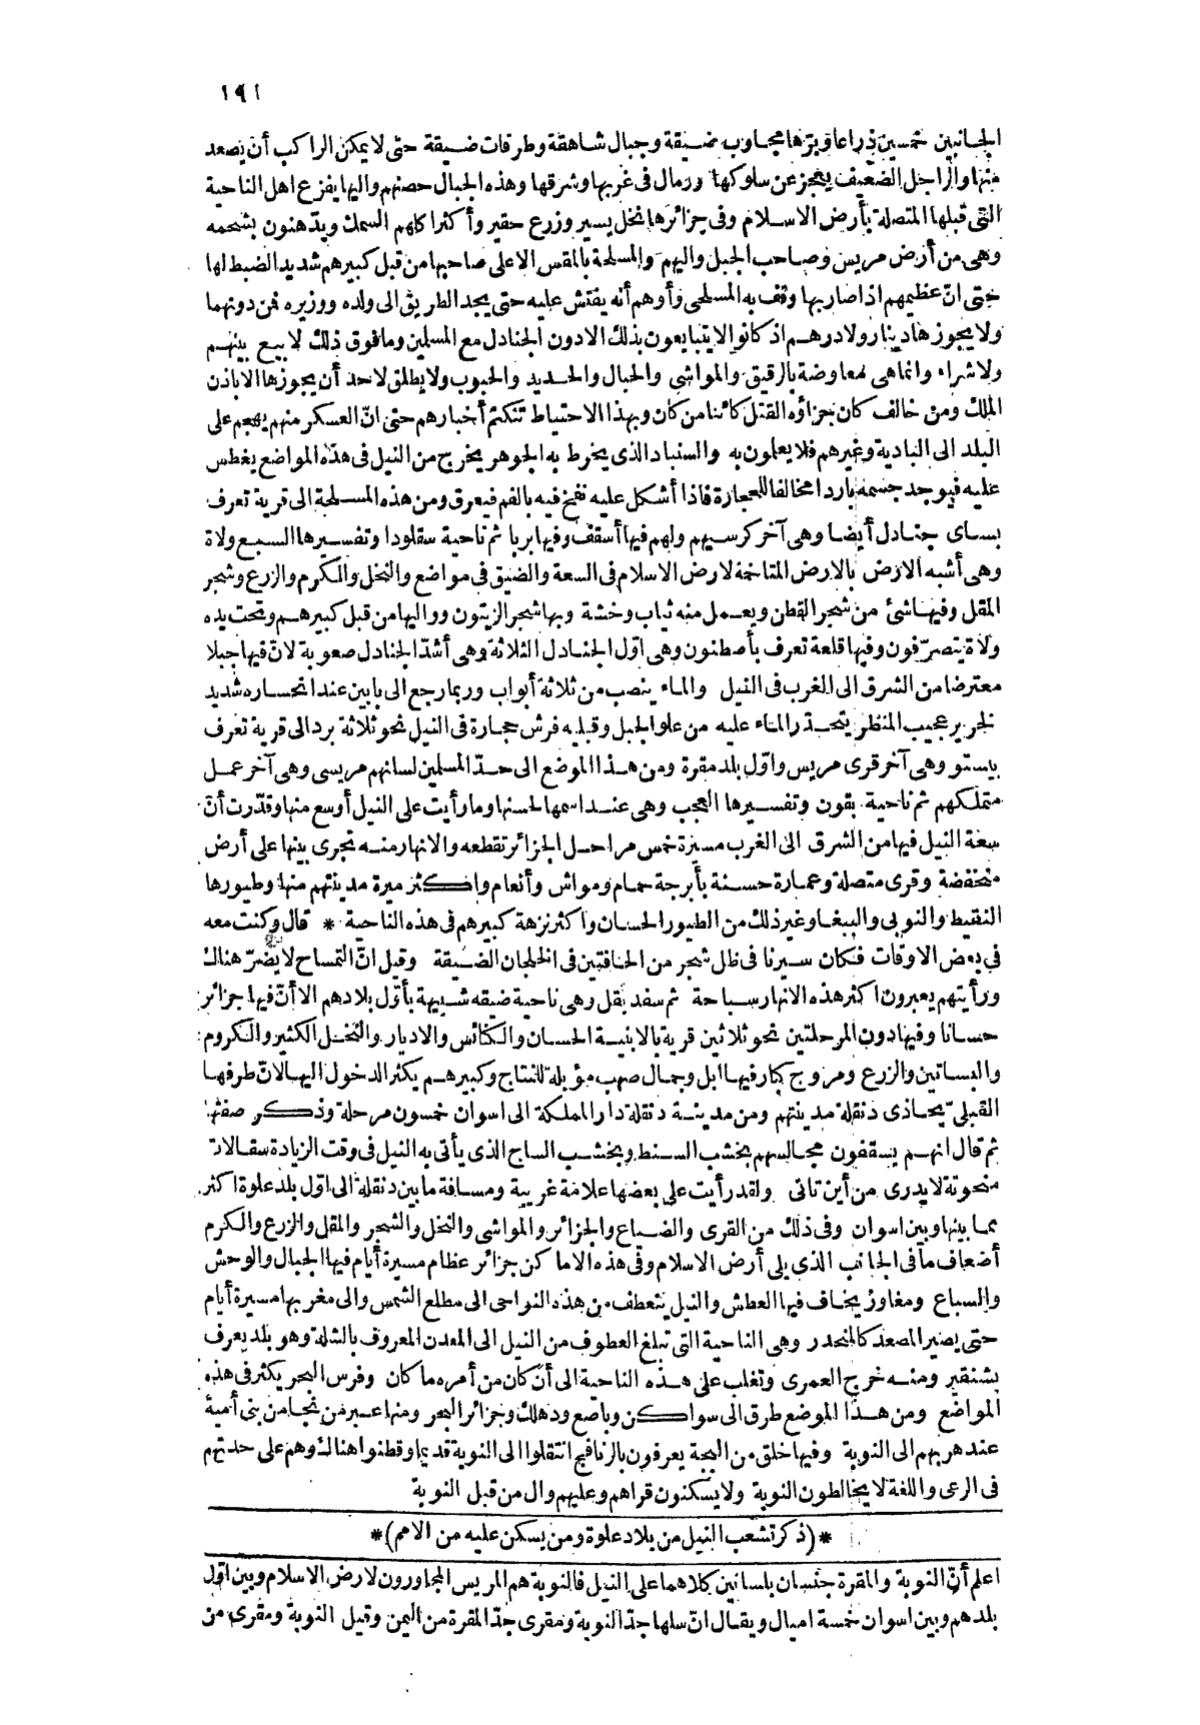 ١٩١
الجانبين خمسين ذراعا وبرّها مجاوب ضيقة وجبال شاهقة وطرقات ضيقة حتى لا يمكن الراكب أن يصعد
منها والراجل الضعيف يعجز عن سلوكها ورمال فى غربها وشرقها وهذه الجبال حصنهم واليها يفزع اهل الناحية
التى قبلها المتصلة بأرض الاسلام وفى جزائرها نخل يسير وزرع حقير وأكثر اكلهم السمك ويدّهنون بشحمه
وهى من أرض مريس وصاحب الجبل واليهم والمسلحة بالمقس الاعلى صاحبها من قبل كبيرهم شديد الضبط لها
حتى انّ عظيمهم اذا صار بها وقف به المسلحى وأوهم أنه يفتش عليه حتى يجد الطريق الى ولده ووزيره فمن دونهما
ولا يجوزها دينار ولا درهم اذ كانوا لا يتبايعون بذلك الا دون الجنادل مع المسلمين وما فوق ذلك لا بيع بينهم
ولا شراء وانما هى معاوضة بالرقيق والمواشى والحبال والحديد والحبوب ولا يطلق لاحد أن يجوزها الا باذن
الملك ومن خالف كان جزاؤه القتل كائنا من كان وبهذا الاحتياط تنكتم أخبارهم حتى انّ العسكر منهم يهجم على
البلد الى البادية وغيرهم فلا يعلمون به والسنباد الذى يخرط به الجوهر يخرج من النيل فى هذه المواضع يغطس
عليه فيوجد جسمه باردا مخالفا للحجارة فاذا أشكل عليه نفخ فيه بالفم فيعرق ومن هذه المسلحة الى قرية تعرف
بساى جنادل أيضا وهى آخر كرسيهم ولهم فيها أسقف وفيها بربا ثم ناحية سقلودا وتفسيرها السبع ولاة
وهى أشبه الارض بالارض المتاخمة لارض الاسلام فى السعة والضيق فى مواضع والنخل والكرم والزرع وشجر
المقل وفيها شئ من شجر القطن ويعمل منه ثياب وخشة وبها شجر الزيتون وواليها من قبل كبيرهم وتحت يده
ولاة يتصرّفون وفيها قلعة تعرف بأصطنون وهى اوّل الجنادل الثلاثة وهى أشدّ الجنادل صعوبة لانّ فيها جبلا
معترضا من الشرق الى الغرب فى النيل والماء ينصب من ثلاثة أبواب وربما رجع الى بابين عند انحساره شديد
الخرير عجيب المنظر يتحدّر الماء عليه من علو الجبل وقبليه فرش حجارة فى النيل نحو ثلاثة برد الى قرية تعرف
بيستو وهى آخر قرى مريس واوّل بلد مقرة ومن هذا الموضع الى حدّ المسلمين لسانهم مريسى وهى آخر عمل
متملكهم ثم ناحية بقون وتفسيرها العجب وهى عند اسمها لحسنها وما رأيت على النيل أوسع منها وقدّرت أنّ
سعة النيل فيها من الشرق الى الغرب مسيرة خمس مراحل الجزائر تقطعه والانهار منه تجرى بينها على أرض
منخفضة وقرى متصلة وعمارة حسنة بأبرجة حمام ومواش وأنعام واكثر ميرة مدينتهم منها وطيورها
النقيط والنوبى والببغا وغير ذلك من الطيور الحسان واكثر نزهة كبيرهم فى هذه الناحية * قال وكنت معه
فى بعض الاوقات فكان سيرنا فى ظل شجر من الحافتين فى الخلجان الضيقة وقيل انّ التمساح لا يضرّ هناك
ورأيتهم يعبرون اكثر هذه الانهار سباحة ثم سفد بقل وهى ناحية ضيقه شبيهة بأوّل بلادهم الا أنّ فيها جزائر
حسانا وفيها دون المرحلتين نحو ثلاثين قرية بالابنية الحسان والكنائس والاديار والنخل الكثير والكروم
والبساتين والزرع ومروج كبار فيها ابل وجمال صهب مؤبلة للنتاج وكبيرهم يكثر الدخول اليها لانّ طرفها
القبلىّ يحاذى دنقلة مدينتهم ومن مدينة دنقلة دار المملكة الى اسوان خمسون مرحلة وذكر صفتها
ثم قال انهم يسقفون مجالسهم بخشب السنط وبخشب الساج الذى يأتى به النيل فى وقت الزيادة سقالات
منحوتة لا يدرى من أين تاتى ولقد رأيت على بعضها علامة غريبة ومسافة ما بين دنقلة الى اوّل بلد علوة اكثر
مما بينها وبين اسوان وفى ذلك من القرى والضياع والجزائر والمواشى والنخل والشجر والمقل والزرع والكرم
أضعاف ما فى الجانب الذى يلى أرض الاسلام وفى هذه الاماكن جزائر عظام مسيرة أيام فيها الجبال والوحش
والسباع ومغاوز يخاف فيها العطش والنيل ينعطف من هذه النواحى الى مطلع الشمس والى مغربها مسيرة أيام
حتى يصير المصعد كالمنحدر وهى الناحية التى تبلغ العطوف من النيل الى المعدن المعروف بالشلة وهو بلد يعرف
بشنقير ومنه خرج العمرى وتغلب على هذه الناحية الى أن كان من أمره ما كان وفرس البحر يكثر فى هذه
المواضع ومن هذا الموضع طرق الى سواكن وباصع ودهلك وجزائر البحر ومنها عبر من نجا من بنى أمية
عند هربهم الى النوبة وفيها خلق من البجة يعرفون بالزنافج انتقلوا الى النوبة قديما وقطنوا هناك وهم على حدتهم
فى الرعى واللغة لا يخالطون النوبة ولا يسكنون قراهم وعليهم وال من قبل النوبة
* (ذكر تشعب النيل من بلاد علوة ومن يسكن عليه من الامم) *
اعلم أنّ النوبة والمقرة جنسان بلسانين كلاهما على النيل فالنوبة هم المريس المجاورون لارض الاسلام وبين اوّل
بلدهم وبين اسوان خمسة اميال ويقال انّ سلها جدّ النوبة ومقرى جدّ المقرة من اليمن وقيل النوبة ومقرى من